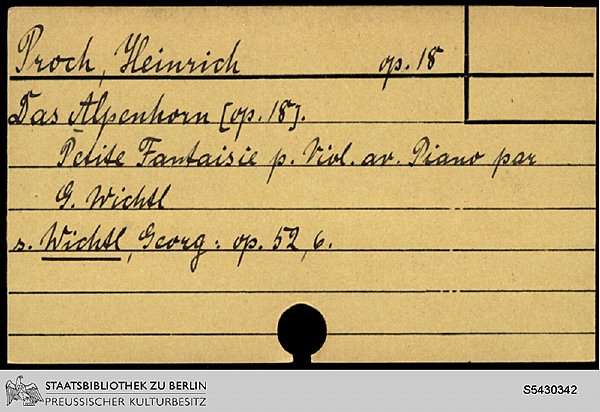 Proch, Heinrich op. 18
Das Alpenhorn [op. 18].
Petite Fantaisie p. Viol. av. Piano par
G. Wichtl
s. Wichtl, Georg: op. 52, 6.
STAATSBIBLIOTHEK ZU BERLIN
PREUSSISCHER KULTURBESITZ
S5430342